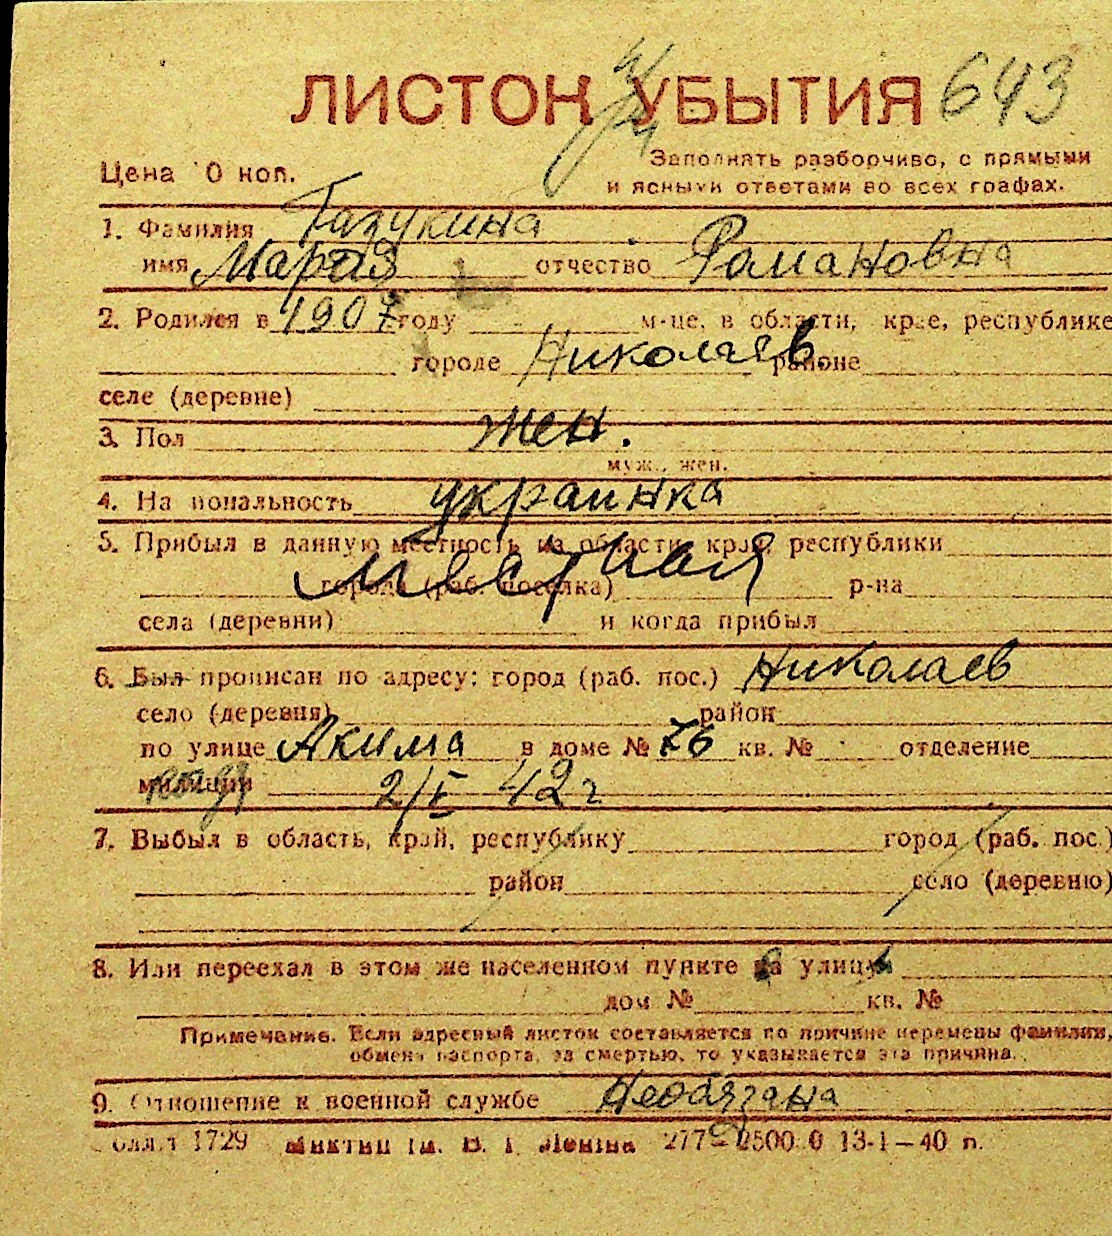 ЛИСТОК УБЫТИЯ 643
Цена 0 коп.
Заполнять разборчиво, с прямыми
и ясными ответами во всех графах.
1. Фамилия Газукина
имя Мария отчество Романовна
2. Родился в 1907 году м-це, в области, крае, республике
городе Николаев районе
селе (деревне)
3. Пол жен.
муж., жен.
4. Национальность украинка
5. Прибыл в данную местность из области, края, республики
местная
города (раб. поселка) р-на
села (деревни) и когда прибыл
6. Был прописан по адресу: город (раб. пос.) Николаев
село (деревня) район
по улице Акима в доме № 76 кв. № отделение
милиции 2/I 42 г
7. Выбыл в область, край, республику город (раб. пос.)
район село (деревню)
8. Или переехал в этом же населенном пункте на улицу
дом № кв. №
Примечание. Если адресный листок составляется по причине перемены фамилии,
обмена паспорта, за смертью, то указывается эта причина.
9. Отношение к военной службе Необязана
1729 ім. В. І. Леніна 277 2500.0 13-1—40 п.